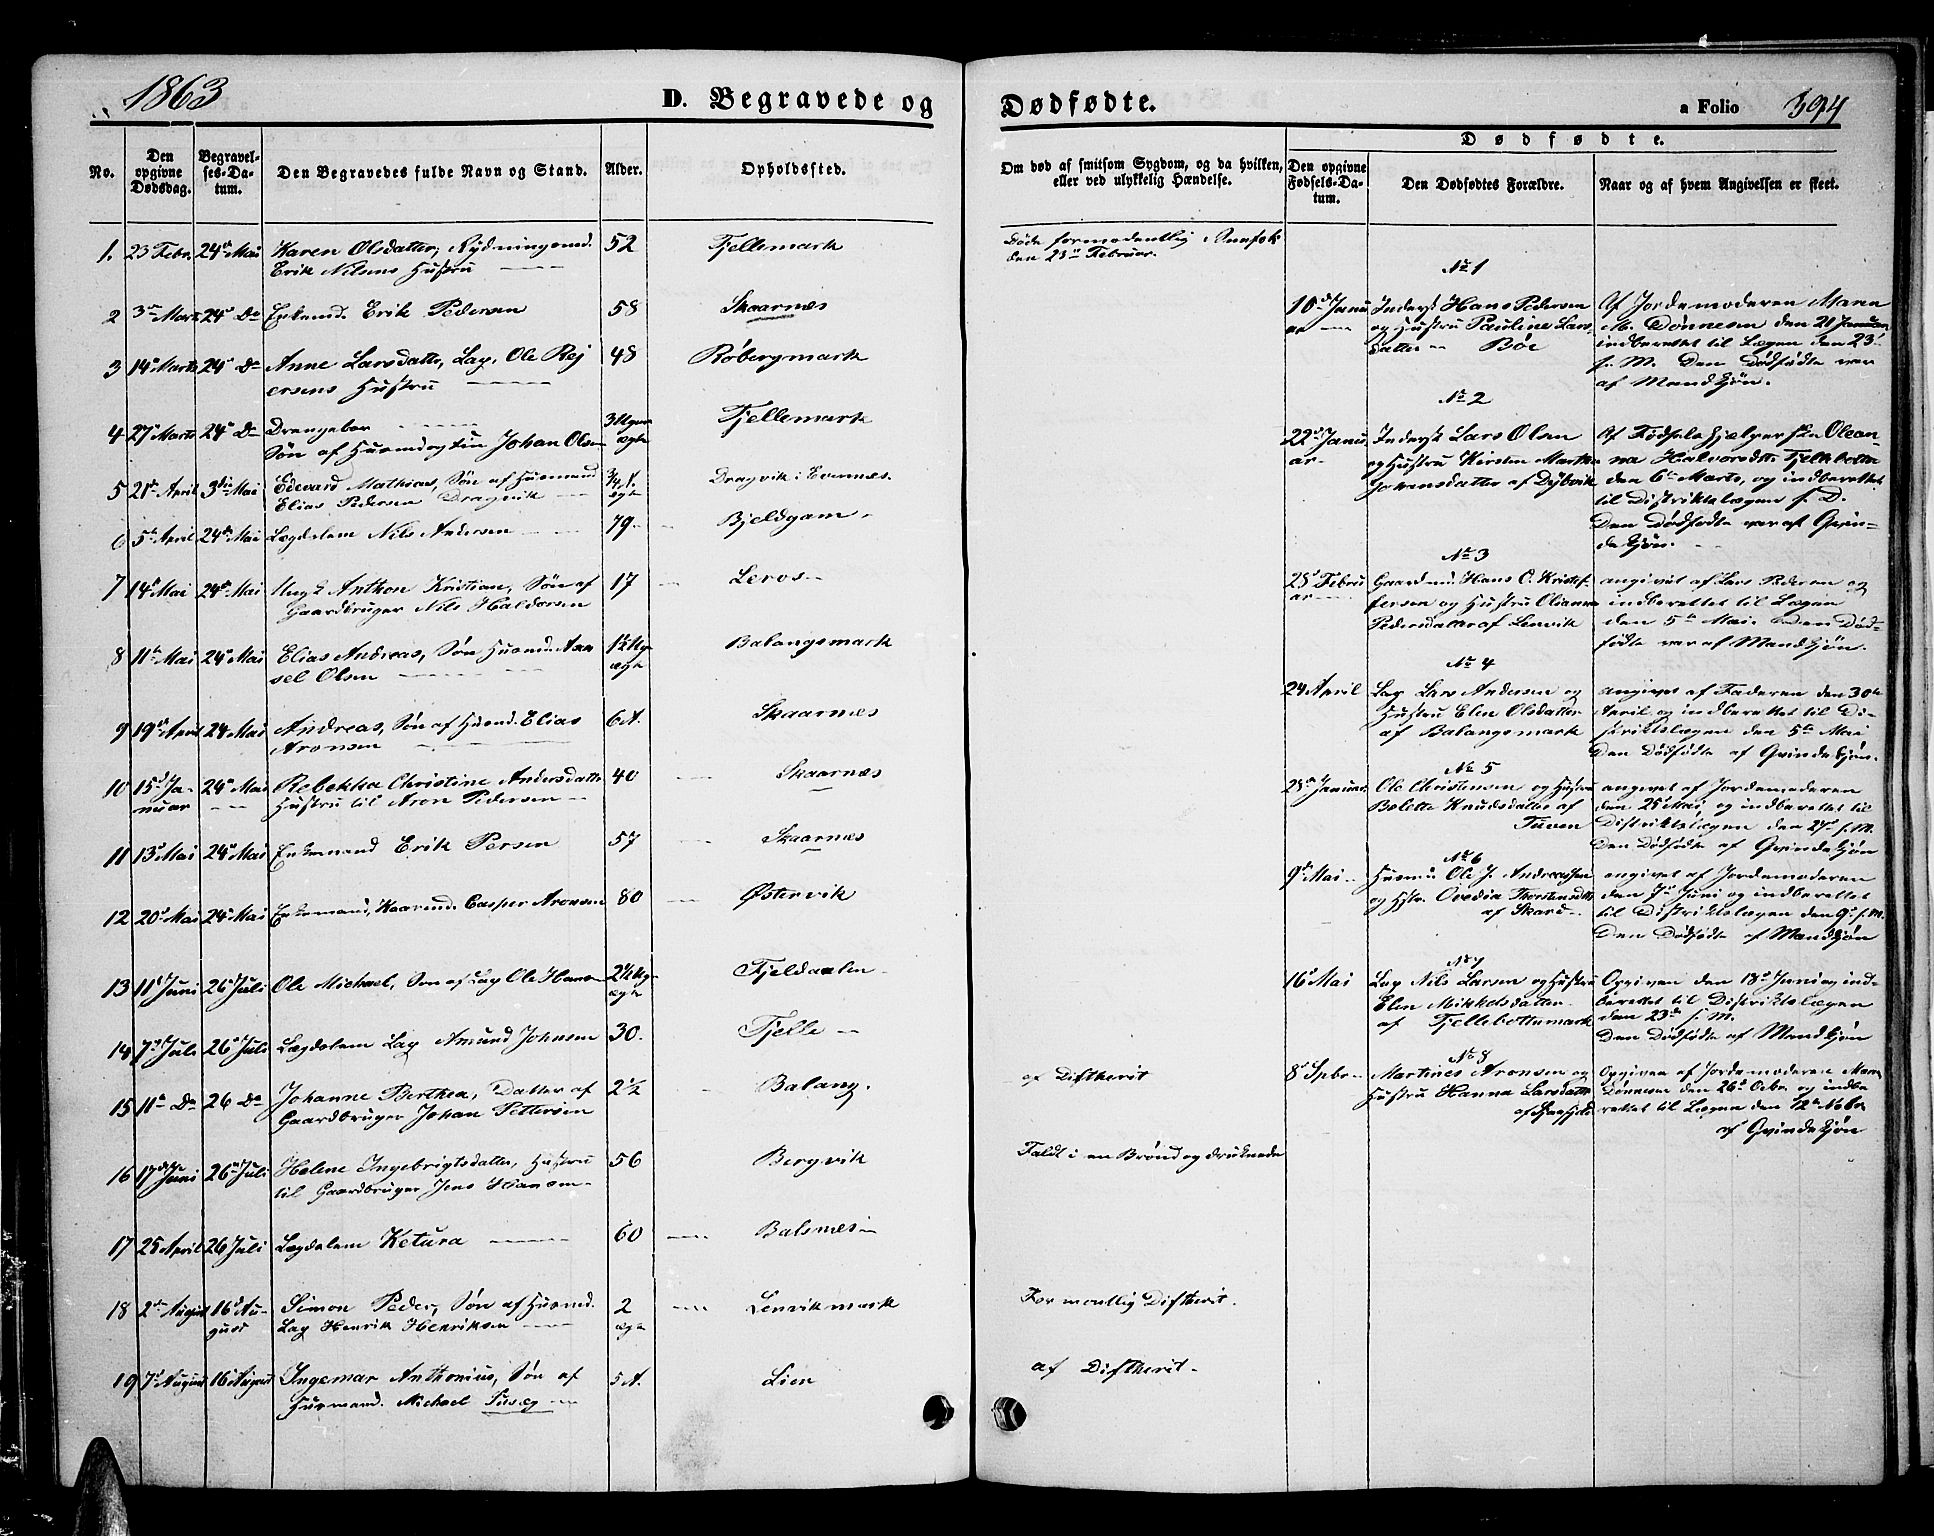 1863
D. Begravede og
Dødfødte.
a Folio 394
No.
Den opgivne Dødsdag.
Begravelses-Datum.
Den Begravedes fulde Navn og Stand.
Alder.
Opholdssted.
Om død af smitsom Sygdom, og da hvilken, eller ved ulykkelig Hændelse.
Dødfødte.
Den opgivne Fødsels-Datum.
Den Dødfødtes Forældre.
Naar og af hvem Angivelsen er skeet.
1. 23 Febr. 24de Mai Karen Olsdatter, Rydningsmd. 52 Fjellemark
Erik Nilsens Hustru
Døde formodentlig i Sneefok
den 23de Februar.
2 3die Marts 24de Do Enkemd. Erik Pedersen 58 Skaarnæs
3 14de Marts 24de Do Anne Larsdatter, Lap. Ole Rej 48 Røbergmark
ersens Hustru
4 27de Marts 24de Do Drengebarn Fjellemark
Søn af Husmd Johan Olsen ægte
5 21de April 3die Mai Edevard Mathias, Søn af Husmand ¾ A. Dragvik i Evenæs.
Elias Pedersen Dragvik ægte
6 5te April 24de Mai Lægdslem Nils Andersen 79 Bjeldgam
7 14de Mai 24de Mai Ungk Anthon Kristian, Søn af 17 Leros
Gaardbruger Nils Haldorsen
8 11te Mai 24de Mai Elias Andreas, Søn Husmd. An 1½ Ug. Balangsmark
sel Olsen ægte
9 19de April 24 Mai Andreas, Søn af Husmd. Elias 6 A. Skaarnæs
Aronsen
10 15de Ja- 24de Mai Rebekka Christine Andersdatter 40 Skaarnæs
nuar Hustru til Aron Pedersen
11 13de Mai 24de Mai Enkemand Erik Persen 57 Skaarnæs
12 20de Mai 24de Mai Enkemand, Kaarmd. Casper Aronsen 80 Østervik
13 11te Juni 26de Juli Ole Michael, Søn af Lap Ole Hansen 2½ Ug. Fjeldaalen
ægte
14 7de Juli 26de Juli Lægdslem Lap Amund Johnsen 30. Fjelle
15 11te Do 26 Do Johanne Berthea, Datter af 2½ Balang. af Diftherit
Gaardbruger Johan Pettersen
16 17de Juni 26de Juli Helene Ingebrigtsdatter, Hustru 56 Bergvik Faldt i en Brønd og druknede
til Gaardbruger Jens Hansen
17 25 April 26 Juli Lægdslem Ketura 60 Balsnæs
18 2den August 16de Au- Simon Peder, Søn af Husmd. 2 Lenvikmark Formentlig Diftherit.
gust Lap Henrik Henriksen ægte
19 7de August 16 August Ingemar Anthonius, Søn af 5 A. Lien af Diftherit
Husmand. Michael
No 1
10de Janu Inderst Hans Pedersen Af Jordemoderen Maren
ar og Hustru Pauline Lars M. Dønnesen den 21 Januar
datter Bøe indberettet til Lægen den 23de
s. M. Den Dødfødte var
af Mandkjøn.
No 2
22de Janu Inderst Lars Olsen Af Fødselshjelpersken Olean-
ar og Hustru Kirsten Martha na Halvorsdtr. Fjellebotn
Johensdatter af Dybvik den 6te Marts, og indberettet
til Distriktslægen s. D.
Den Dødfødte var af Qvin-
dekjøn.
No 3
25de Febru Gaardmd. Hans C. Kristof angivet af Lars Pedersen og
ar fersen og Hustru Olianna indberettet til Lægen
Pedersdatter af Lenvik den 5te Mai. Den Død-
fødte var af Mandkjøn.
No 4
24 April Lap Lars Andersen og angivet af Faderen den 30te
Hustru Elen Olsdatter April og indberettet til Di-
af Balangsmark striktslægen den 5te Mai
Den Dødfødte af Qvindekjøn.
No 5
28de Januar Ole Christensen og Hustru angivet af Jordemoderen
Bolette Knudsdatter af den 25de Mai og indberettet til
Tunen Distriktslægen den 27de s. M.
Den Dødfødte af Qvindekjøn
No 6
9de Mai Husmd Ole J. Andreassen angivet af Jordemoderen
og Hstr. Ovedia Thorstensdtr den 7de Juni og indberettet
af Skard til Distriktslægen den 9de s. M.
Den Dødfødte af Mandkjøn
No 7
16 Mai Lap Nils Larsen og Hustru Opgiven den 18de Juni og ind-
Elen Mikkelsdatter berettet til Distriktslægen
af Fjellebottumark den 23de s. M.
Den Dødfødte af Mandkjøn
No 8
8de Spbr Martines Aronsen og Opgiven af Jordemoderen Maren
Hustru Hanna Larsdatter Dønnesen den 26de Octbr. og indbe
rettet til Lægen den 12te Nobr.
af Qvindekjøn